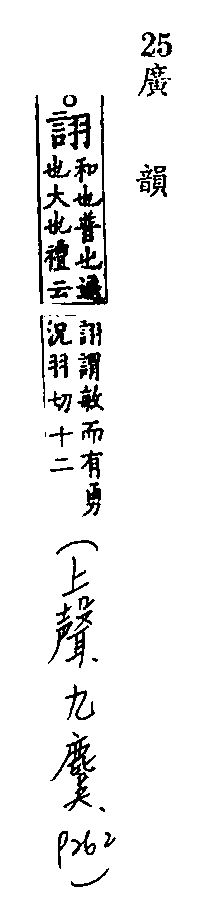 25
廣韻
詡
和也普也遍
也大也禮云
詡謂敏而有勇
況羽切十二
(上聲、九麌、P262)